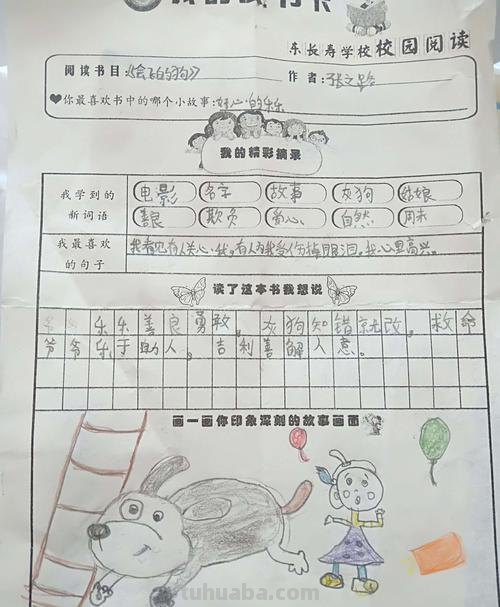 我的读书卡
东长寿学校校园阅读
阅读书目：《会飞的狗》 作者：张之路
你最喜欢书中的哪个小故事：好心的乐乐
我的精彩摘录
我学到的新词语 电影 名字 故事 灰狗 姑娘
善良 欺负 自然 周末
我最喜欢的句子 我看见有人关心我，有人为我受伤掉眼泪，我心里高兴。
读了这本书我想说
乐乐善良勇敢，灰狗知错就改，救命
爷爷乐于助人，吉利善解人意。
画一画你印象深刻的故事画面
tuhuaba.com